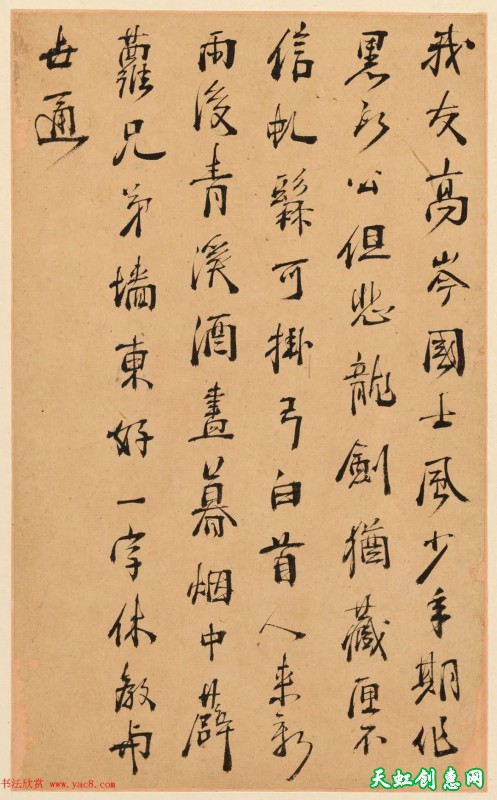 我友高岑國士風少年期作
黑頭公但悲龍劍猶藏匣不
信虬可掛弓白首人來新
雨後青溪酒畫暮烟中薜
蘿兄弟墻東好一字休教與
世通
书法欣赏 www.yac8.com
天虹创意网